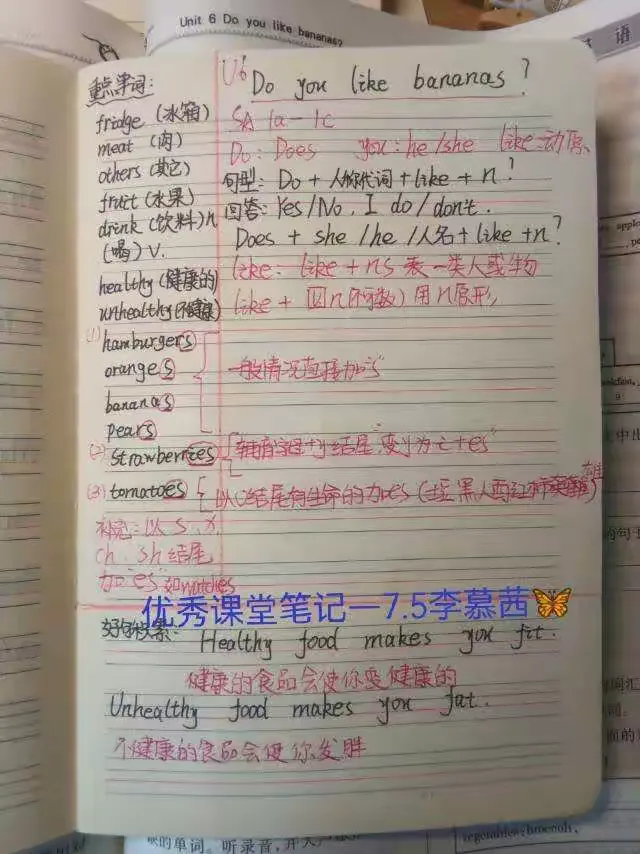 Unit 6 Do you like bananas?
语
重点单词:
fridge (冰箱)
meat (肉)
others (其它)
fruit (水果)
drink (饮料) n
(喝) v.
healthy (健康的)
unhealthy (不健康)
(1) hamburgers
oranges
bananas
pears
一般情况直接加“s”
(2) strawberries
辅音字母+y结尾,变y为i+es”
(3) tomatoes
以o结尾有生命的加es
补充:以 s、x、
ch、sh 结尾
加“es” 如watches
U6 Do you like bananas?
SA 1a-1c
Do: Does you: he/she like 动原
句型: Do + 人称代词 + like + n?
回答: Yes/No, I do/don't.
Does + she/he/人名 + like + n?
like: like + ns 表一类人或物
like + n(不可数) 用n原形
优秀课堂笔记—7.5李慕茜🦋
Healthy food makes you fit.
健康的食品会使你变健康的
Unhealthy food makes you fat.
不健康的食品会使你发胖
的单词。听录音,
vegetables: broccoli,